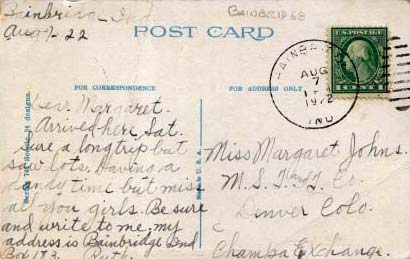 Bainbridge, Ind
Aug 7-22
BAINBRIDGE
POST CARD
FOR CORRESPONDENCE
FOR ADDRESS ONLY
BAINBRIDGE
AUG
7
1922
IND
U.S. POSTAGE
Dear Margaret.
Arrived here, Sat.
sure a long trip but
saw lots. Having a
dandy time but miss
all you girls. Be sure
and write to me, my
address is Bainbridge Ind
Box 173. Ruth.
Series 741 Scenic, 24 designs.
Made in U.S.A.
Miss Margaret Johns.
M.S. T. and T. Co.
Denver Colo.
c
Champa Exchange.